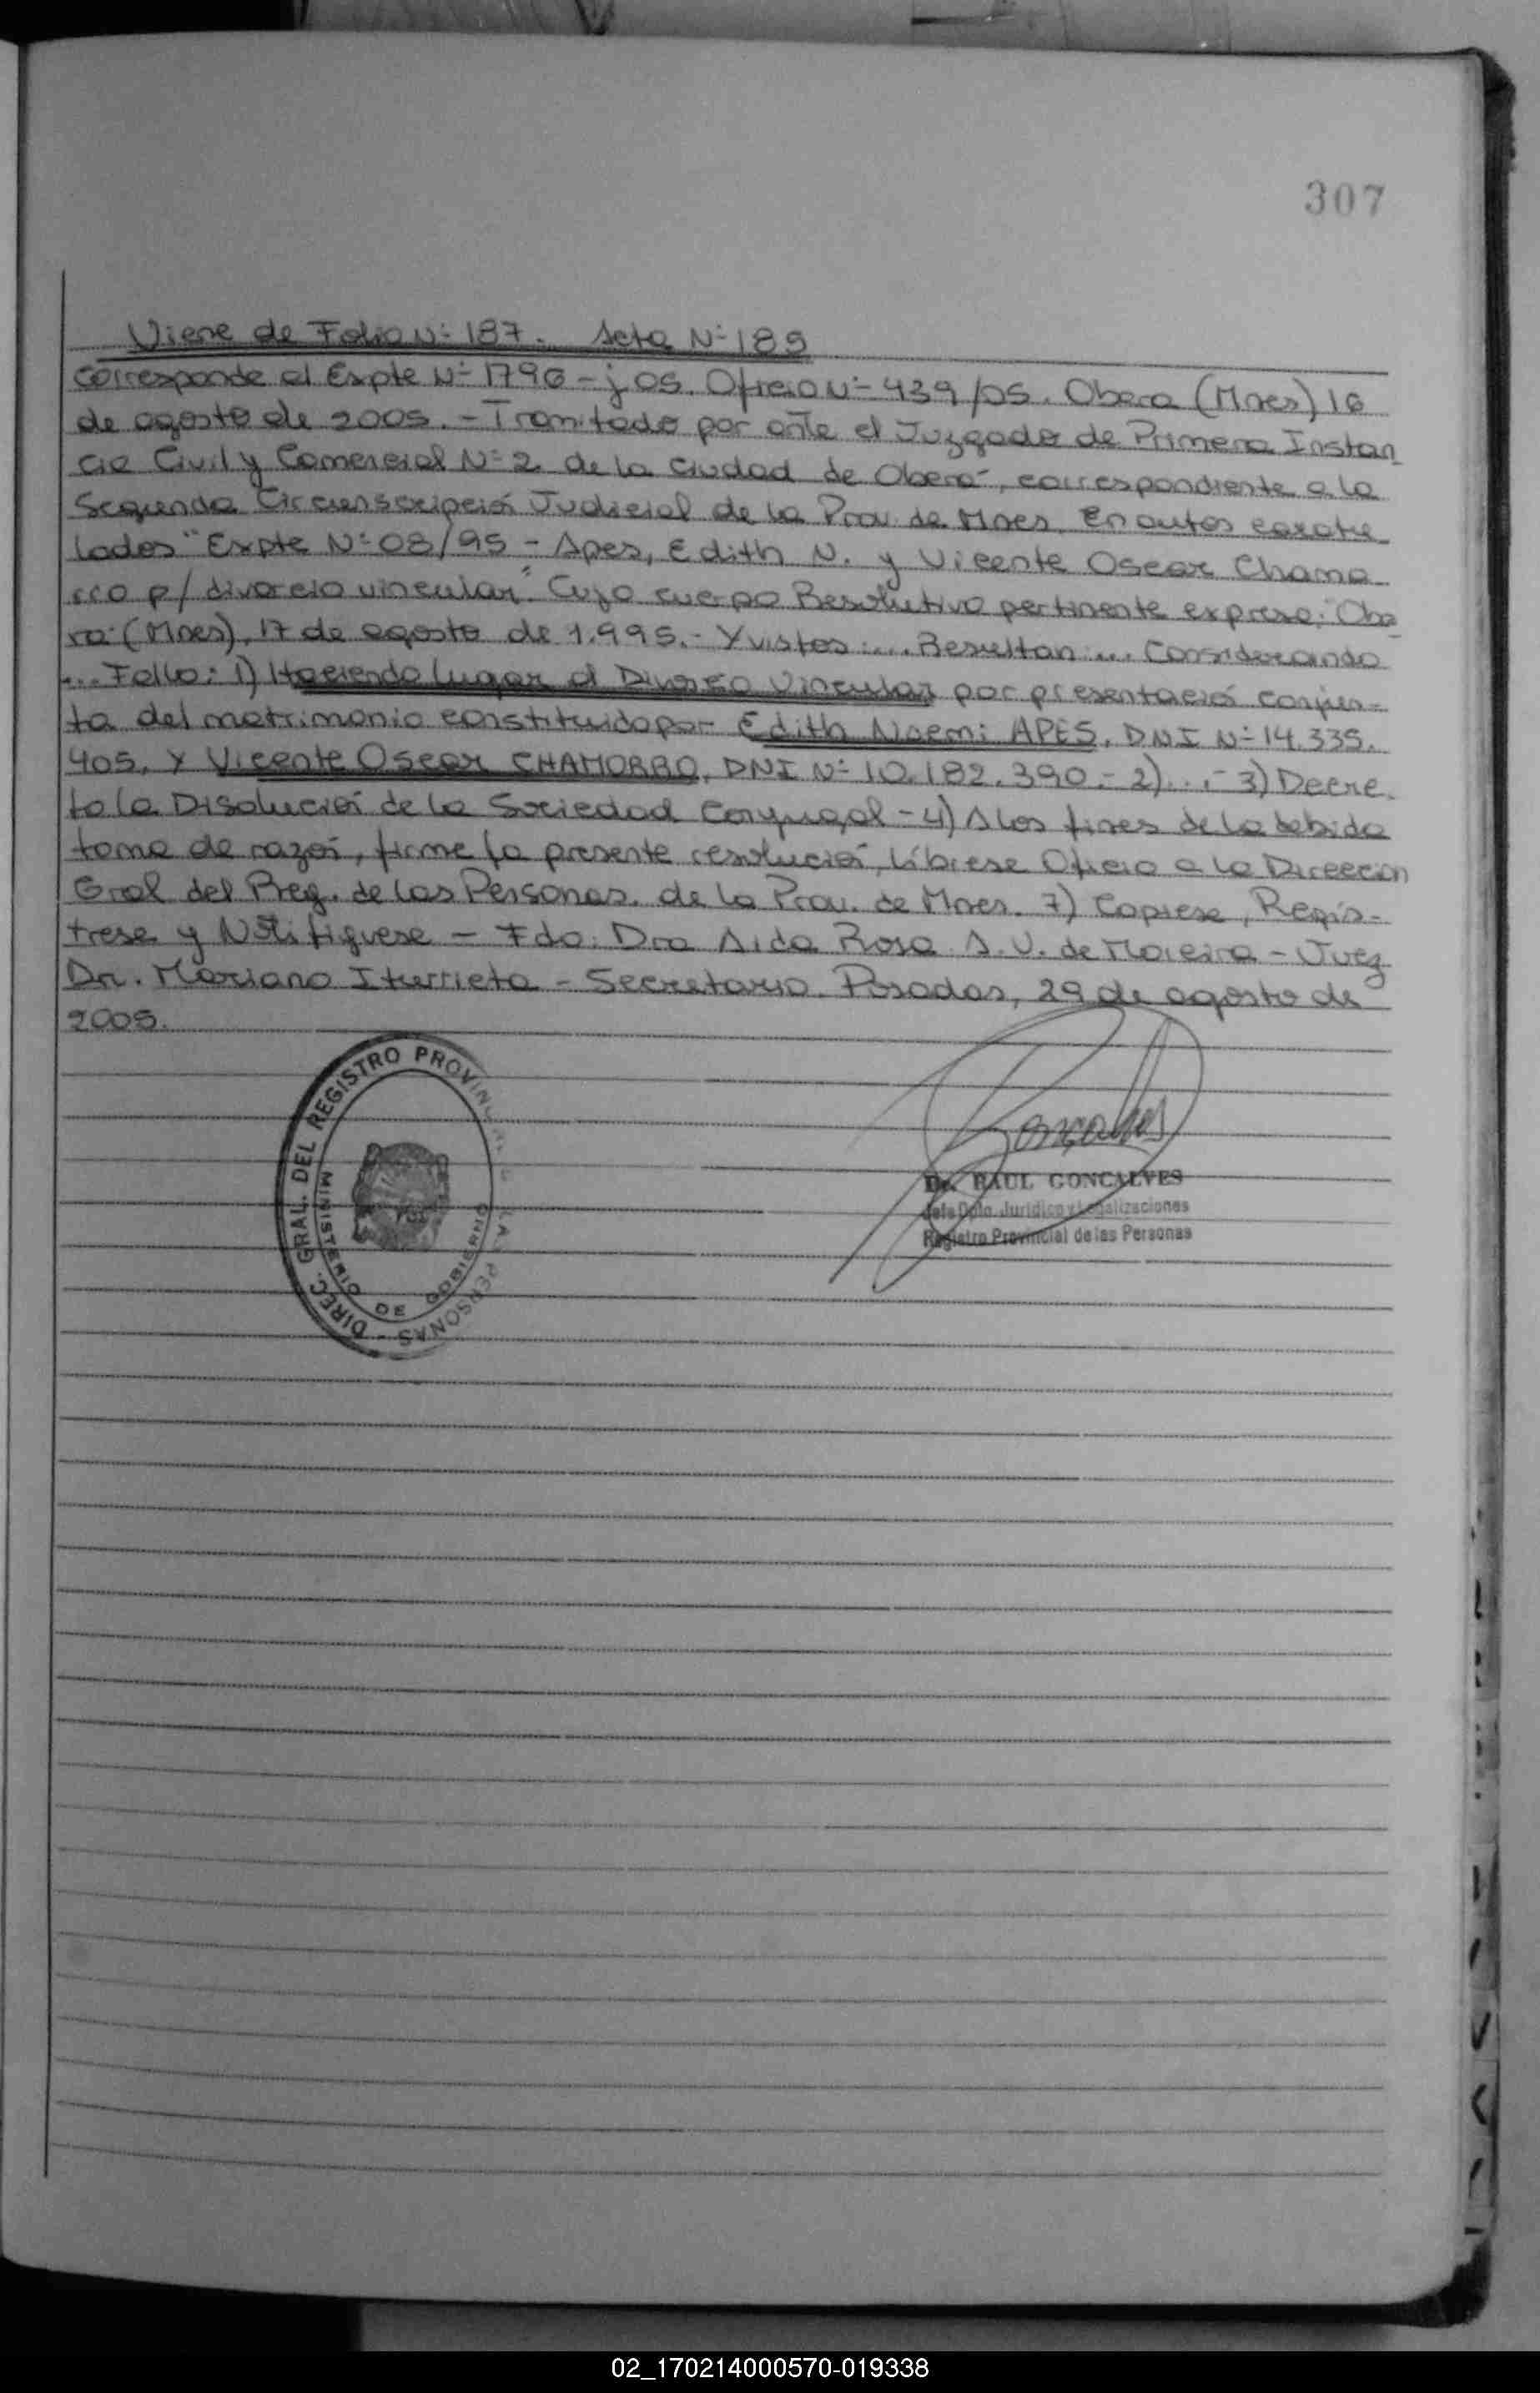 307
Viene de Folio Nº 187. Acta Nº 189
Corresponde al Expte Nº 1796 - j 05. Oficio Nº 439/05. Obera (Mnes) 16
de agosto de 2005. - Tramitado por ante el Juzgado de Primera Instan
cia Civil y Comercial Nº 2 de la Ciudad de Oberá, correspondiente a la
Segunda Circunscripción Judicial de la Prov. de Mnes. En autos caratu
lados "Expte Nº 08/95 - Apes, Edith N. y Vicente Oscar Chamo
rro p/ divorcio vincular". Cuyo cuerpo Resolutivo pertinente expresa: "Obe
ra (Mnes), 17 de agosto de 1.995.- Y vistos:... Resultan:... Considerando
... Fallo: 1) Haciendo lugar al Divorcio Vincular por presentación conjun-
ta del matrimonio constituido por Edith Noemi APES, DNI Nº 14.335.
405. Y Vicente Oscar CHAMORRO, DNI Nº 10.182.390.- 2)...- 3) Decre.
to la Disolución de la Sociedad Conyugal - 4) A los fines de la debida
toma de razón, firme la presente resolución, líbrese Oficio a la Dirección
Gral del Reg. de las Personas. de la Prov. de Mnes. 7) Copiese, Regís-
trese y Notifiquese - Fdo: Dra Aida Rosa A. V. de Moreira - Juez
Dr. Mariano Iturrieta - Secretario. Posadas, 29 de agosto de
2005.
DIREC. GRAL. DEL REGISTRO PROVINCIAL LAS PERSONAS -
MINISTERIO DE GOBIERNO
Goncalves
Dr. RAUL GONCALVES
Jefe Dpto. Jurídico y Legalizaciones
Registro Provincial de las Personas
02_170214000570-019338